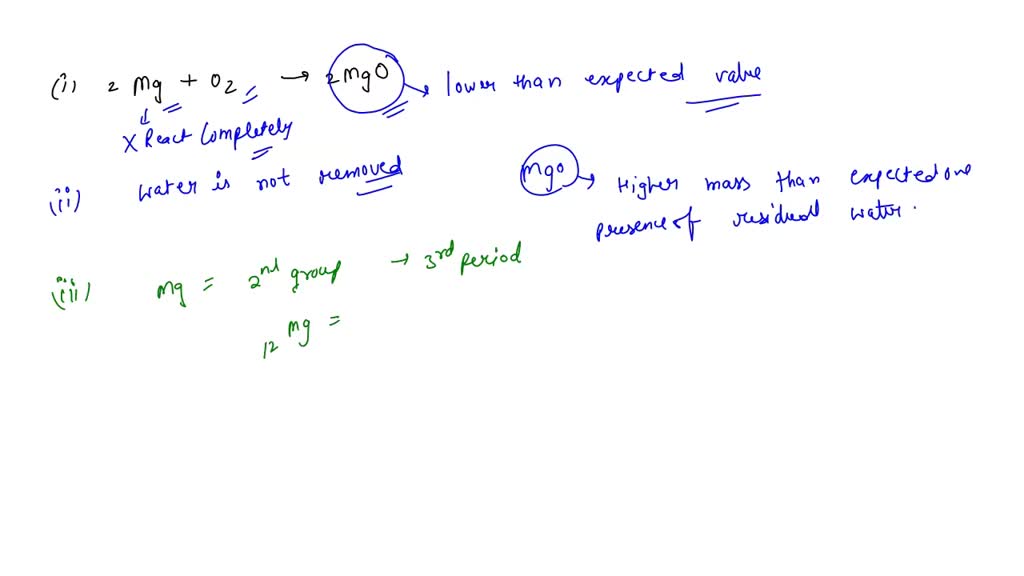 (i) 2 Mg + O2 → 2MgO → lower than expected value
X React Completely
(ii) water is not removed
MgO → Higher mass than expected one
presence of residual water.
(iii) Mg = 2nd group → 3rd period
12 Mg =